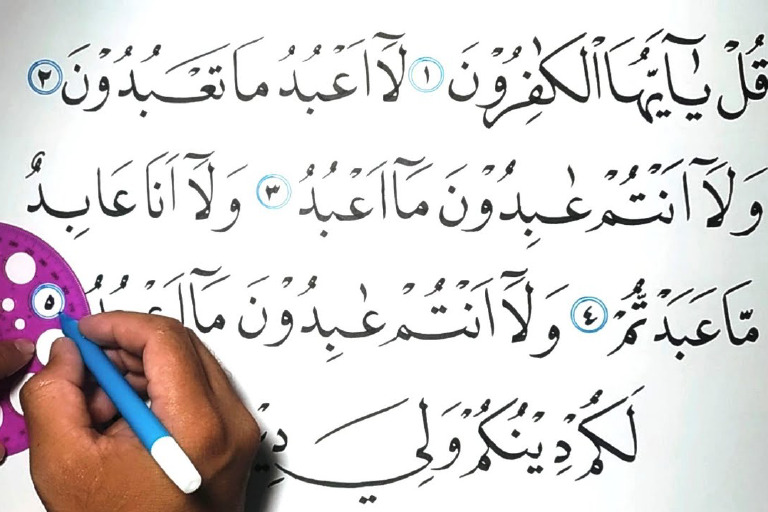 قُلْ يٰٓاَيُّهَا الْكٰفِرُوْنَ ١ لَآ اَعْبُدُ مَا تَعْبُدُوْنَ ٢
وَلَآ اَنْتُمْ عٰبِدُوْنَ مَآ اَعْبُدُ ٣ وَلَآ اَنَا۠ عَابِدٌ
مَّا عَبَدْتُّمْ ٤ وَلَآ اَنْتُمْ عٰبِدُوْنَ مَآ اَعْبُدُ ٥
لَكُمْ دِيْنُكُمْ وَلِيَ